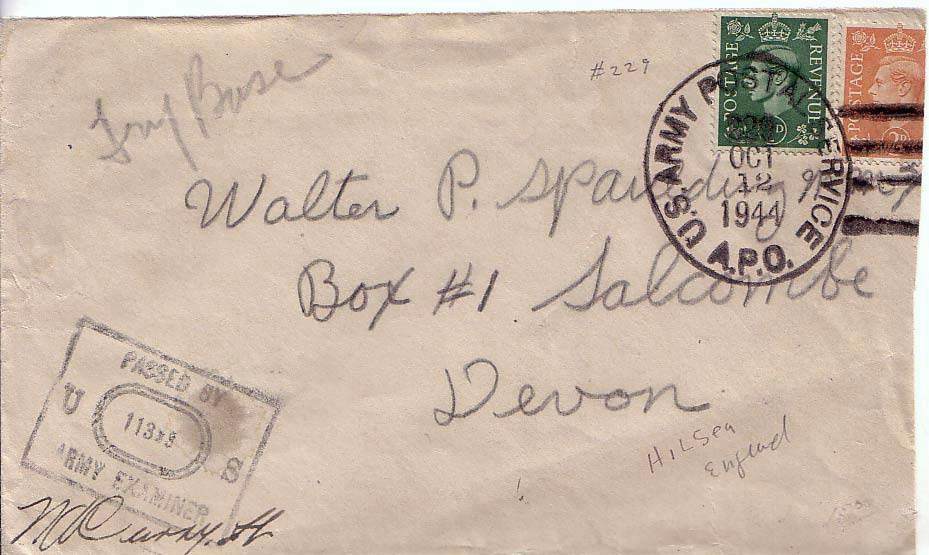 #229
POSTAGE REVENUE
POSTAGE
U.S. ARMY POSTAL SERVICE
OCT
12
1944
A.P.O.
Base
Walter P. Spaulding
Box #1 Salcombe
Devon
HILSea
England
PASSED BY
U S
ARMY EXAMINER